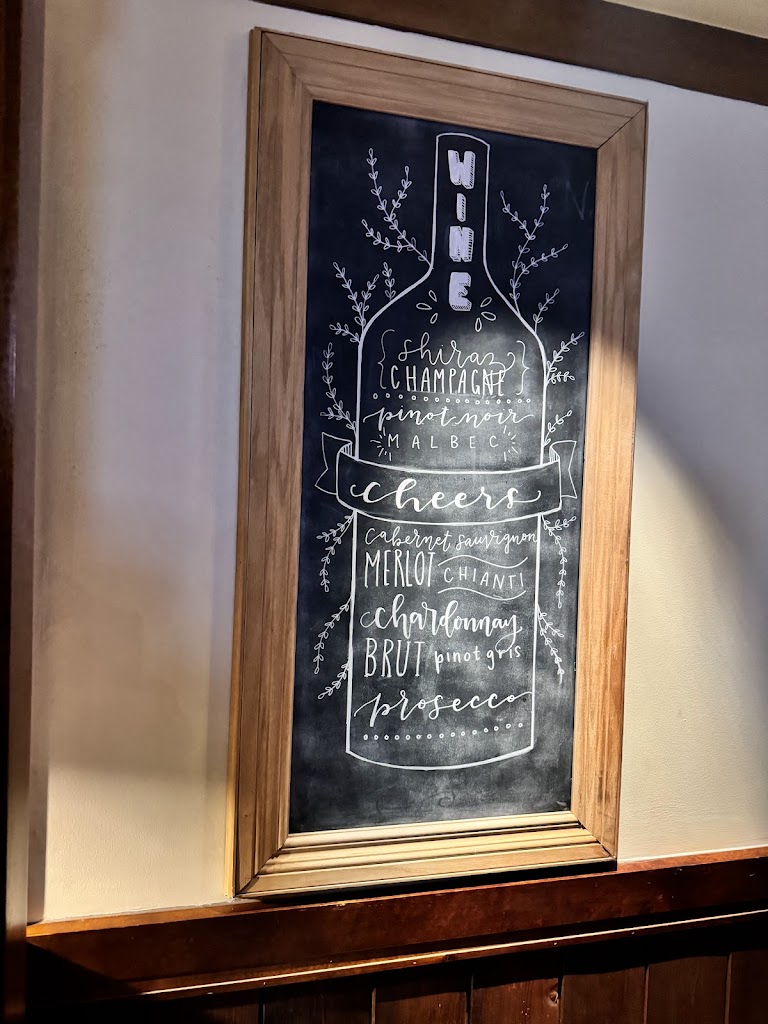 WINE
shiraz
CHAMPAGNE
pinot noir
MALBEC
cheers
cabernet sauvignon
MERLOT CHIANTI
chardonnay
BRUT pinot gris
prosecco